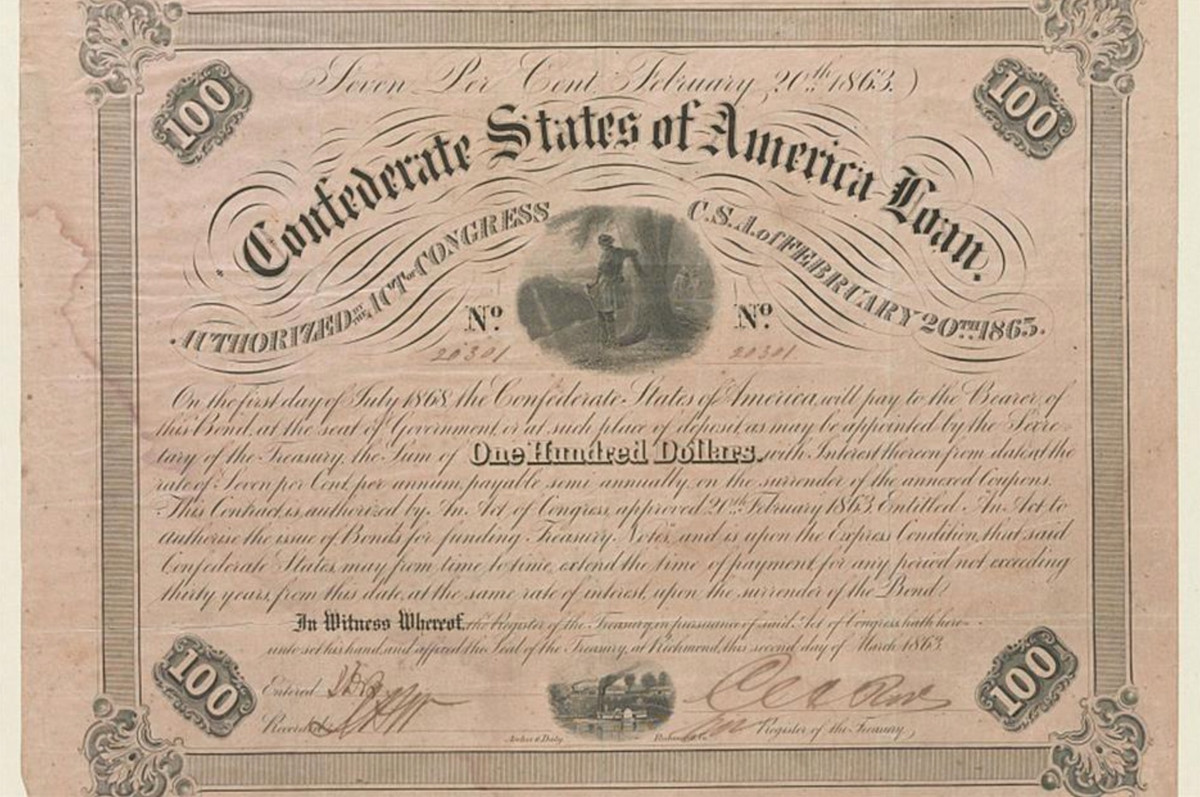 100
Seven Per Cent February, 20th 1863.)
100
Confederate States of America Loan.
AUTHORIZED BY THE ACT OF CONGRESS C.S.A. of FEBRUARY 20TH 1863.
No. No.
20301 20301
On the first day of July 1868, the Confederate States of America, will pay to the Bearer, of
this Bond, at the seat of Government, or at such place of deposit, as may be appointed by the Secre-
tary of the Treasury, the Sum of One Hundred Dollars. with Interest thereon from date, at the
rate of Seven per Cent, per annum, payable semi annually, on the surrender of the annexed Coupons.
This Contract, is authorized by An Act of Congress, approved 20th February 1863, Entitled An Act to
authorise the issue of Bonds for funding Treasury Notes, and is upon the Express Condition, that said
Confederate States, may from time to time, extend the time of payment, for any period not exceeding
thirty years, from this date, at the same rate of interest, upon the surrender of the Bond.
In Witness Whereof, the Register of the Treasury, in pursuance of said Act of Congress, hath here-
unto set his hand, and affixed the Seal of the Treasury, at Richmond, this second day of March 1863.
100
Entered
Recorded
Register of the Treasury
100